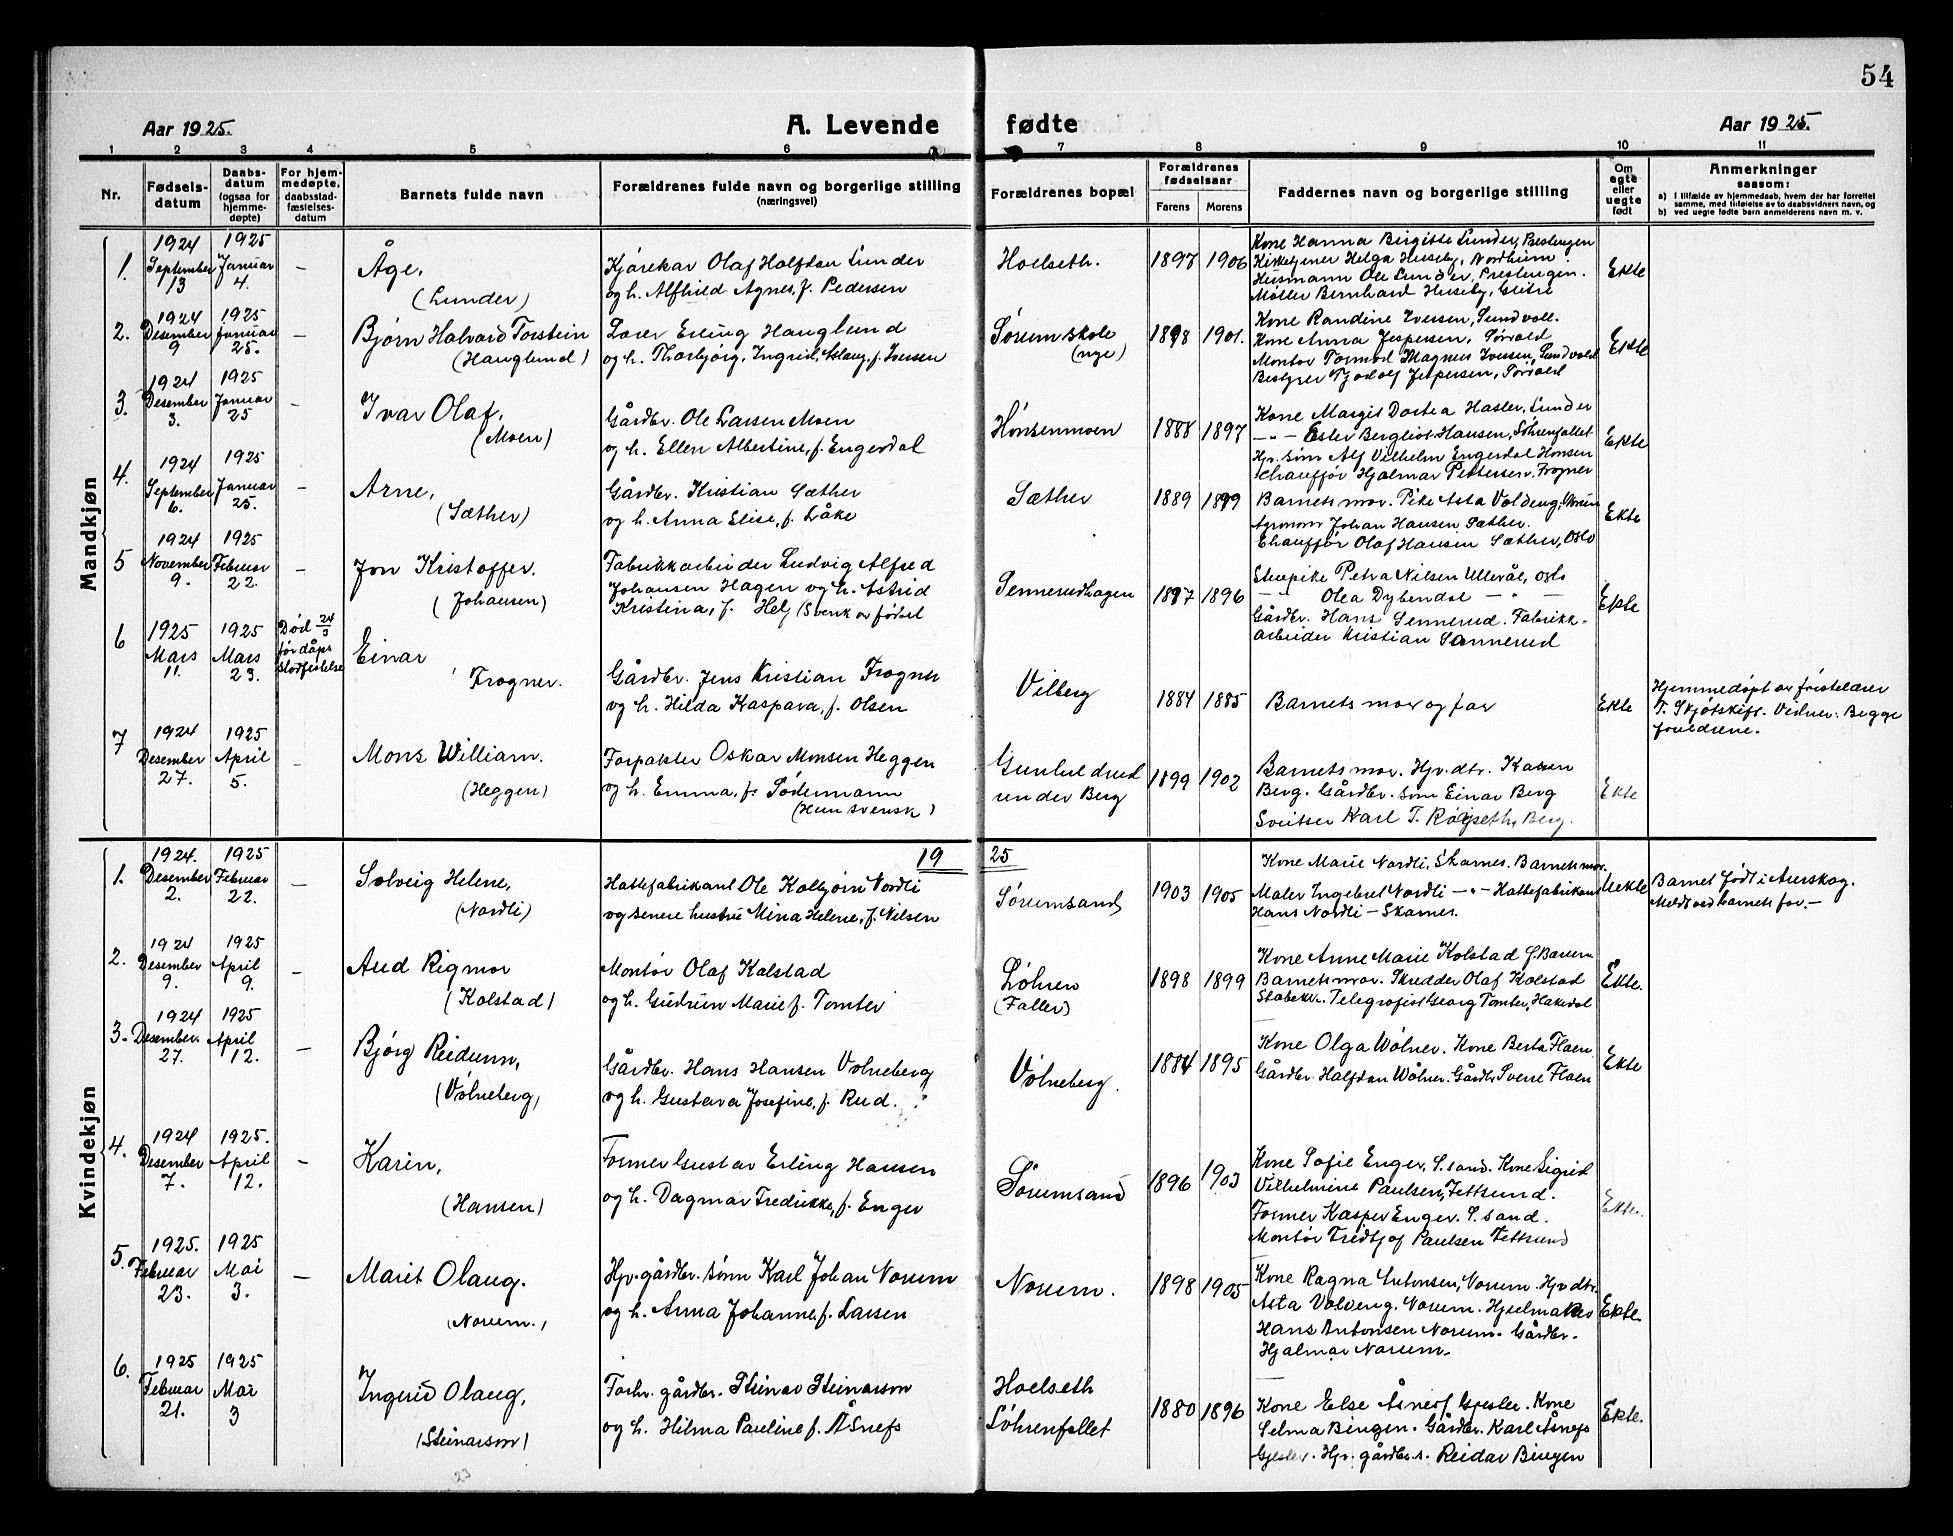 54
Aar 1925.
A. Levende fødte
Aar 1925.
1 2 3 4 5 6 7 8 9 10 11
Nr.
Fødsels-
datum
Daabs-
datum
(ogsaa for
hjemme-
døpte)
For hjem-
medøpte,
daabsstad-
fæstelses-
datum
Barnets fulde navn
Forældrenes fulde navn og borgerlige stilling
(næringsvei)
Forældrenes bopæl
Forældrenes
fødselsaar
Farens Morens
Faddernes navn og borgerlige stilling
Om
egte
eller
uegte
født
Anmerkninger
saasom:
a) i tilfælde av hjemmedaab, hvem der har forrettet
samme, med tilføielse av to daabsvidners navn, og
b) ved uegte fødte barn anmelderens navn m. v.
Mandkjøn
1.
1924
September
13
1925
Januar
4.
–
Åge,
(Lunder)
Kjørekar Olaf Halfdan Lunder
og h. Alfhild Agnes, f. Pedersen
Hoelseth.
1897 1906
Kone Hanna Birgitte Lunder, Prestengen
Kirketjener Helga Huseby, Nordheim.
Husmann Ole Lunder, Prestengen.
Møller Bernhard Huseby,
Ekte
2.
1924
Desember
9
1925
Januar
25.
–
Bjørn Halvard Torstein
(Hauglund)
Lærer Erling Hauglund
og h. Thorbjørg, Ingrid, Aslaug, f. Iversen
Sørum skole
(nye)
1898 1901.
Kone Randine Iversen, Sundvoll.
Kone Anna Jespersen, Sørvald
Montør Tormod Magnus Iversen, Sundvold
Bestyrer Tjodolf Jespersen, Sørvald
Ekte
3.
1924
Desember
3.
1925
Januar
25
–
Ivar Olaf,
(Moen)
Gårdbr. Ole Larsen Moen
og h. Ellen Albertine, f. Engerdal
Hønsenmoen
1888 1897
Kone Margit Dortea Hasler, Lunder
–"– Ester Bergliot Hansen, Sørenfallet
Hjv. sønn Alf Vilhelm Engerdal Hønsen
Chauffør Hjalmar Pettersen, Frogner
Ekte
4.
1924
September
6.
1925
Januar
25.
–
Arne,
(Sæther)
Gårdbr. Kristian Sæther
og h. Anna Elise, f. Låke
Sæther
1889 1899
Barnets mor. Pike Asta Voldeng,
Agronom Johan Hansen Sæther.
Chauffør Olaf Hansen Sæther, Oslo
Ekte
5
1924
November
9.
1925
Februar
22.
–
Jon Kristoffer.
(Johansen)
Fabrikkarbeider Ludvig Alfred
Johansen Hagen og h. Astrid
Kristina, f. Helj (Svensk av fødsel
Sennerudhagen
1887 1896
Stuepike Petra Nilsen Ullevål, Oslo
–"– Olea Dybendal –"–
Gårdbr. Hans Sennerud. Fabrikk-
arbeider Kristian Sennerud
Ekte
6
1925
Mars
11.
1925
Mars
23.
Død 24/3
før dåps
stadfestelse
Einar
Frogner.
Gårdbr. Jens Kristian Frogner
og h. Hilda Kaspara, f. Olsen
Vilberg
1884 1885
Barnets mor og far
Ekte
Hjemmedøpt av frøstelærer
T. Skjøtskift. Vidner: Begge
foreldrene.
7
1924
Desember
27.
1925
April
5.
–
Mons William.
(Heggen)
Forpakter Oskar Monsen Heggen
og h. Emma, f. Södermann
(Hun svensk)
Gunhildrud
under Berg
1899 1902
Barnets mor. Hjv. dtr. Karen
Berg. Gårdbr. sønn Einar Berg
Sveitser Karl T. Berg.
Ekte
19 25
Kvindekjøn
1.
1924.
Desember
2.
1925
Februar
22.
–
Solveig Helene,
(Nordli)
Hattefabrikant Ole Kolbjørn Nordli
og senere hustru Mina Helene, f. Nilsen
Sørumsand,
1903 1905
Kone Marie Nordli, Skarnes. Barnets mor.
Maler Ingebret Nordli –"– Hattefabrikant
Hans Nordli – Skarnes.
Uekte
Barnet født i Aurskog.
Meldt ved barnets far. –
2.
1924
Desember
9.
1925
April
9.
–
Aud Rigmor
(Kolstad)
Montør Olaf Kolstad
og h. Gudrun Marie f. Tomter
Løhren
(Faller)
1898 1899
Kone Anne Marie Kolstad f. Bærum
Barnets mor. Skredder Olaf Kolstad
Stabekk. Telegrafist Georg Tomter, Hakedal
Ekte.
3.
1924
Desember
27.
1925
April
12.
–
Bjørg Reidunn,
(Vølneberg)
Gårdbr. Hans Hansen Vølneberg
og h. Gustava Josefine, f. Rud.
Vølneberg.
1884 1895
Kone Olga Wølner. Kone Berta Flaen
Gårdbr. Halfdan Wølner. Gårdbr. Sverre Flaen
Ekte
4.
1924
Desember
7.
1925.
April
12.
–
Karin,
(Hansen)
Former Gustav Erling Hansen
og h. Dagmar Fredrikke, f. Enger
Sørumsand
1896 1903
Kone Sofie Enger, S.sand. Kone Sigrid
Vilhelmine Paulsen, Fettsund.
Former Kasper Enger. S.sand.
Montør Fredtjof Paulsen Fettsund
Ekte.
5.
1925.
Februar
23.
1925
Mai
3.
–
Marit Olaug.
(Norum.)
Hjv. gårdbr. sønn Karl Johan Norum
og h. Anna Johanne, f. Larsen
Norum.
1898 1905
Kone Ragna Antonsen, Norum. Hjv. dtr.
Asta Voldeng. Norum. Hjulmaker
Hans Antonsen Norum. Gårdbr.
Hjalmar Norum.
Ekte.
6.
1925
Februar
21.
1925
Mai
3
Ingrid Olaug,
(Steinarson)
Forhv. gårdbr. Steinar Steinarson
og h. Hilma Pauline f. Åsnefs
Hoelseth
Løhrenfallet
1880 1896
Kone Else Åsnes, Gjesler. Kone
Selma Bingen. Gårdbr. Karl Åsnefs
Gjesler. Hjv. gårdbr. s. Reidar Bingen
Ekte.
23